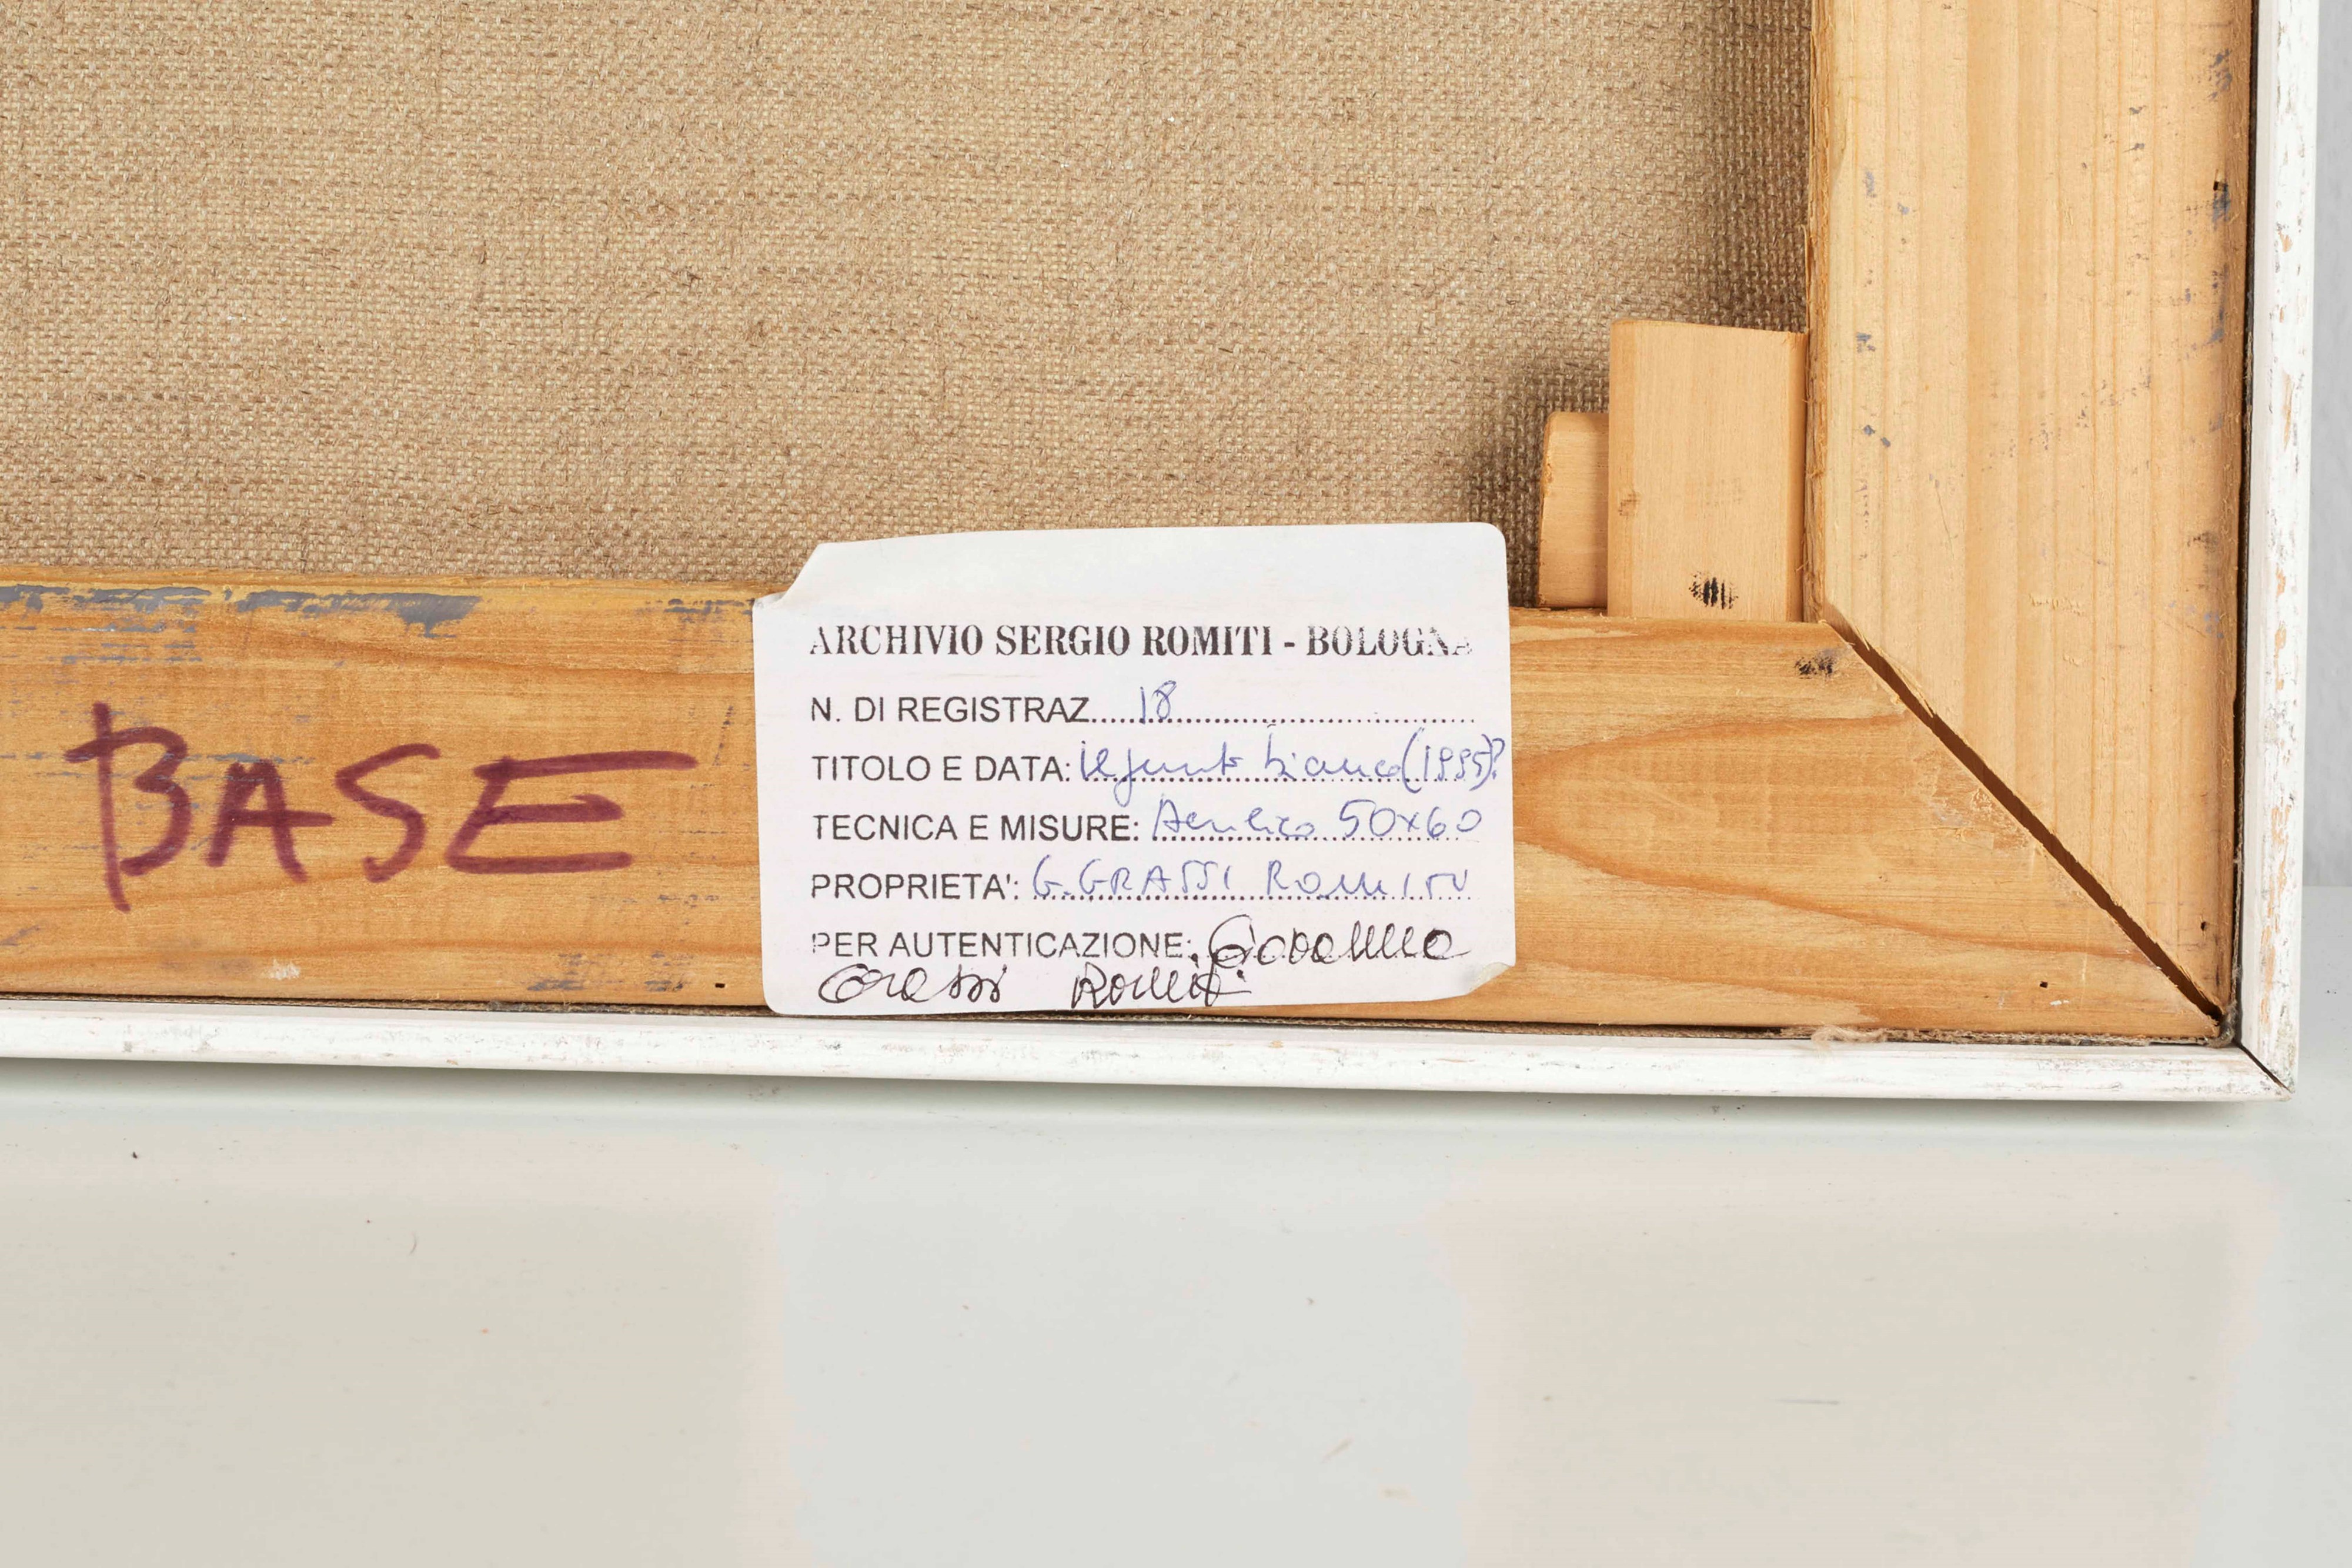 BASE
ARCHIVIO SERGIO ROMITI - BOLOGNA
N. DI REGISTRAZ.....18
TITOLO E DATA: Il punto bianco (1995)?
TECNICA E MISURE: Acrilico 50x60
PROPRIETA': G. GRASSI ROMITI
PER AUTENTICAZIONE: Giovanna
Grassi Romiti